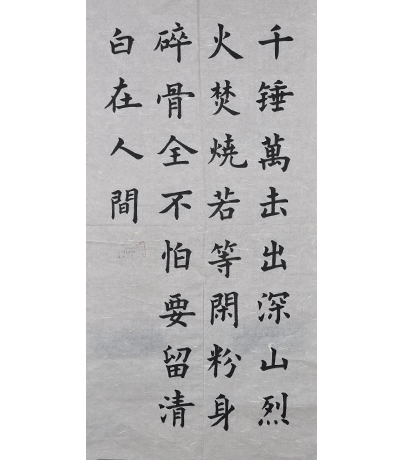 千锤萬击出深山烈
火焚燒若等閑粉身
碎骨全不怕要留清
白在人間